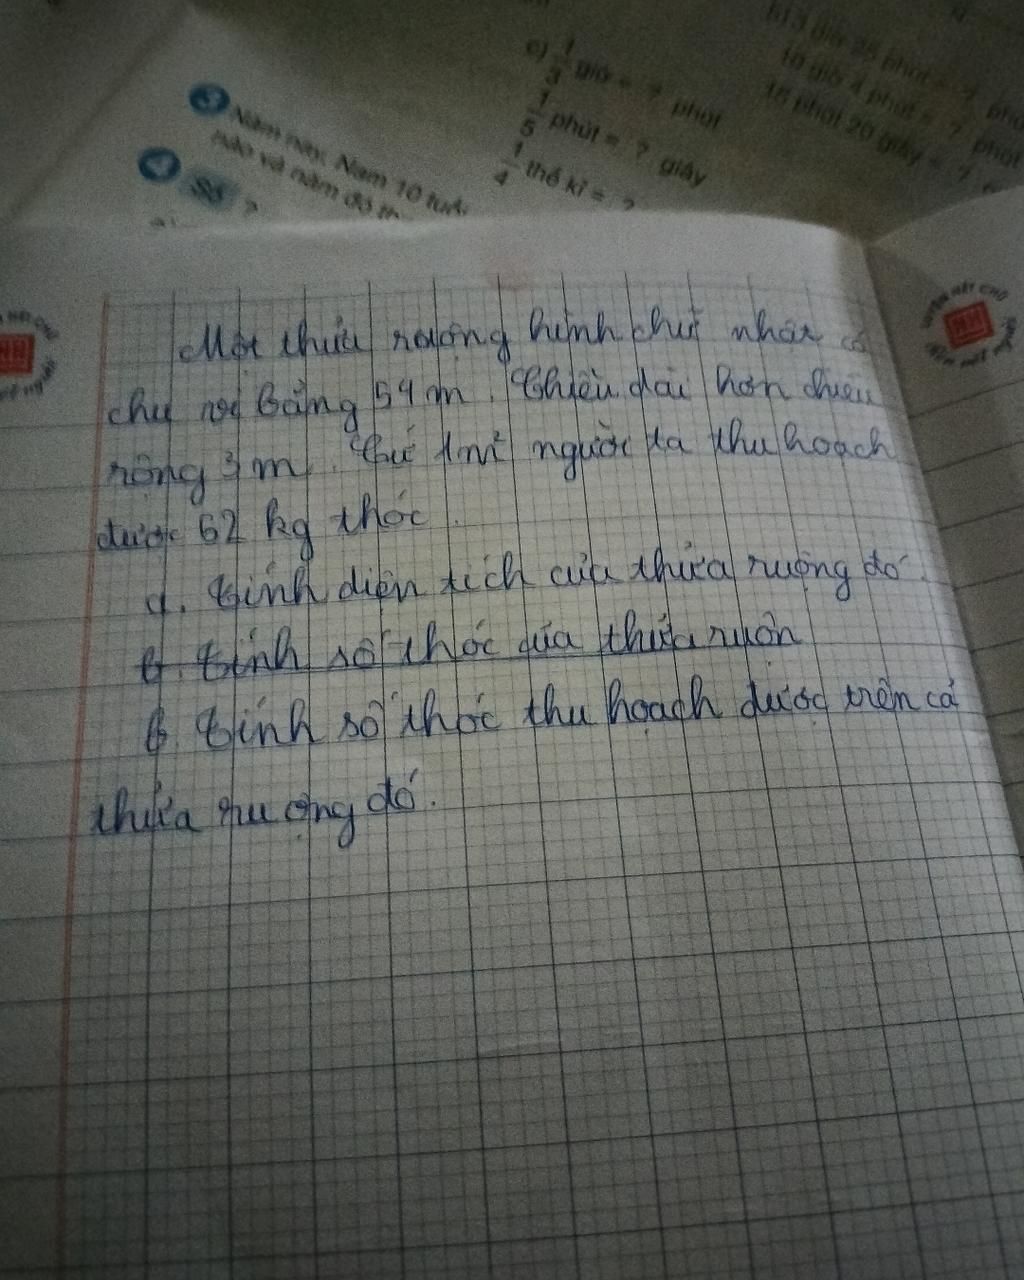 c) 1/3 giờ = ? phút
1/5 phút = ? giây
1/4 thế kỉ = ?
10 giờ 4 phút = ? phút
16 phút 20 giây = ?
3 Năm nay, Nam 10 tuổi
nào và năm đó
4 Số ?
Một thửa ruộng hình chữ nhật có
chu vi bằng 54 m. Chiều dài hơn chiều
rộng 3 m. Cứ 1m² người ta thu hoạch
được 62 kg thóc.
a. Tính diện tích của thửa ruộng đó.
b. Tính số thóc của thửa ruôn
b Tính số thóc thu hoạch được trên cả
thửa ruộng đó.